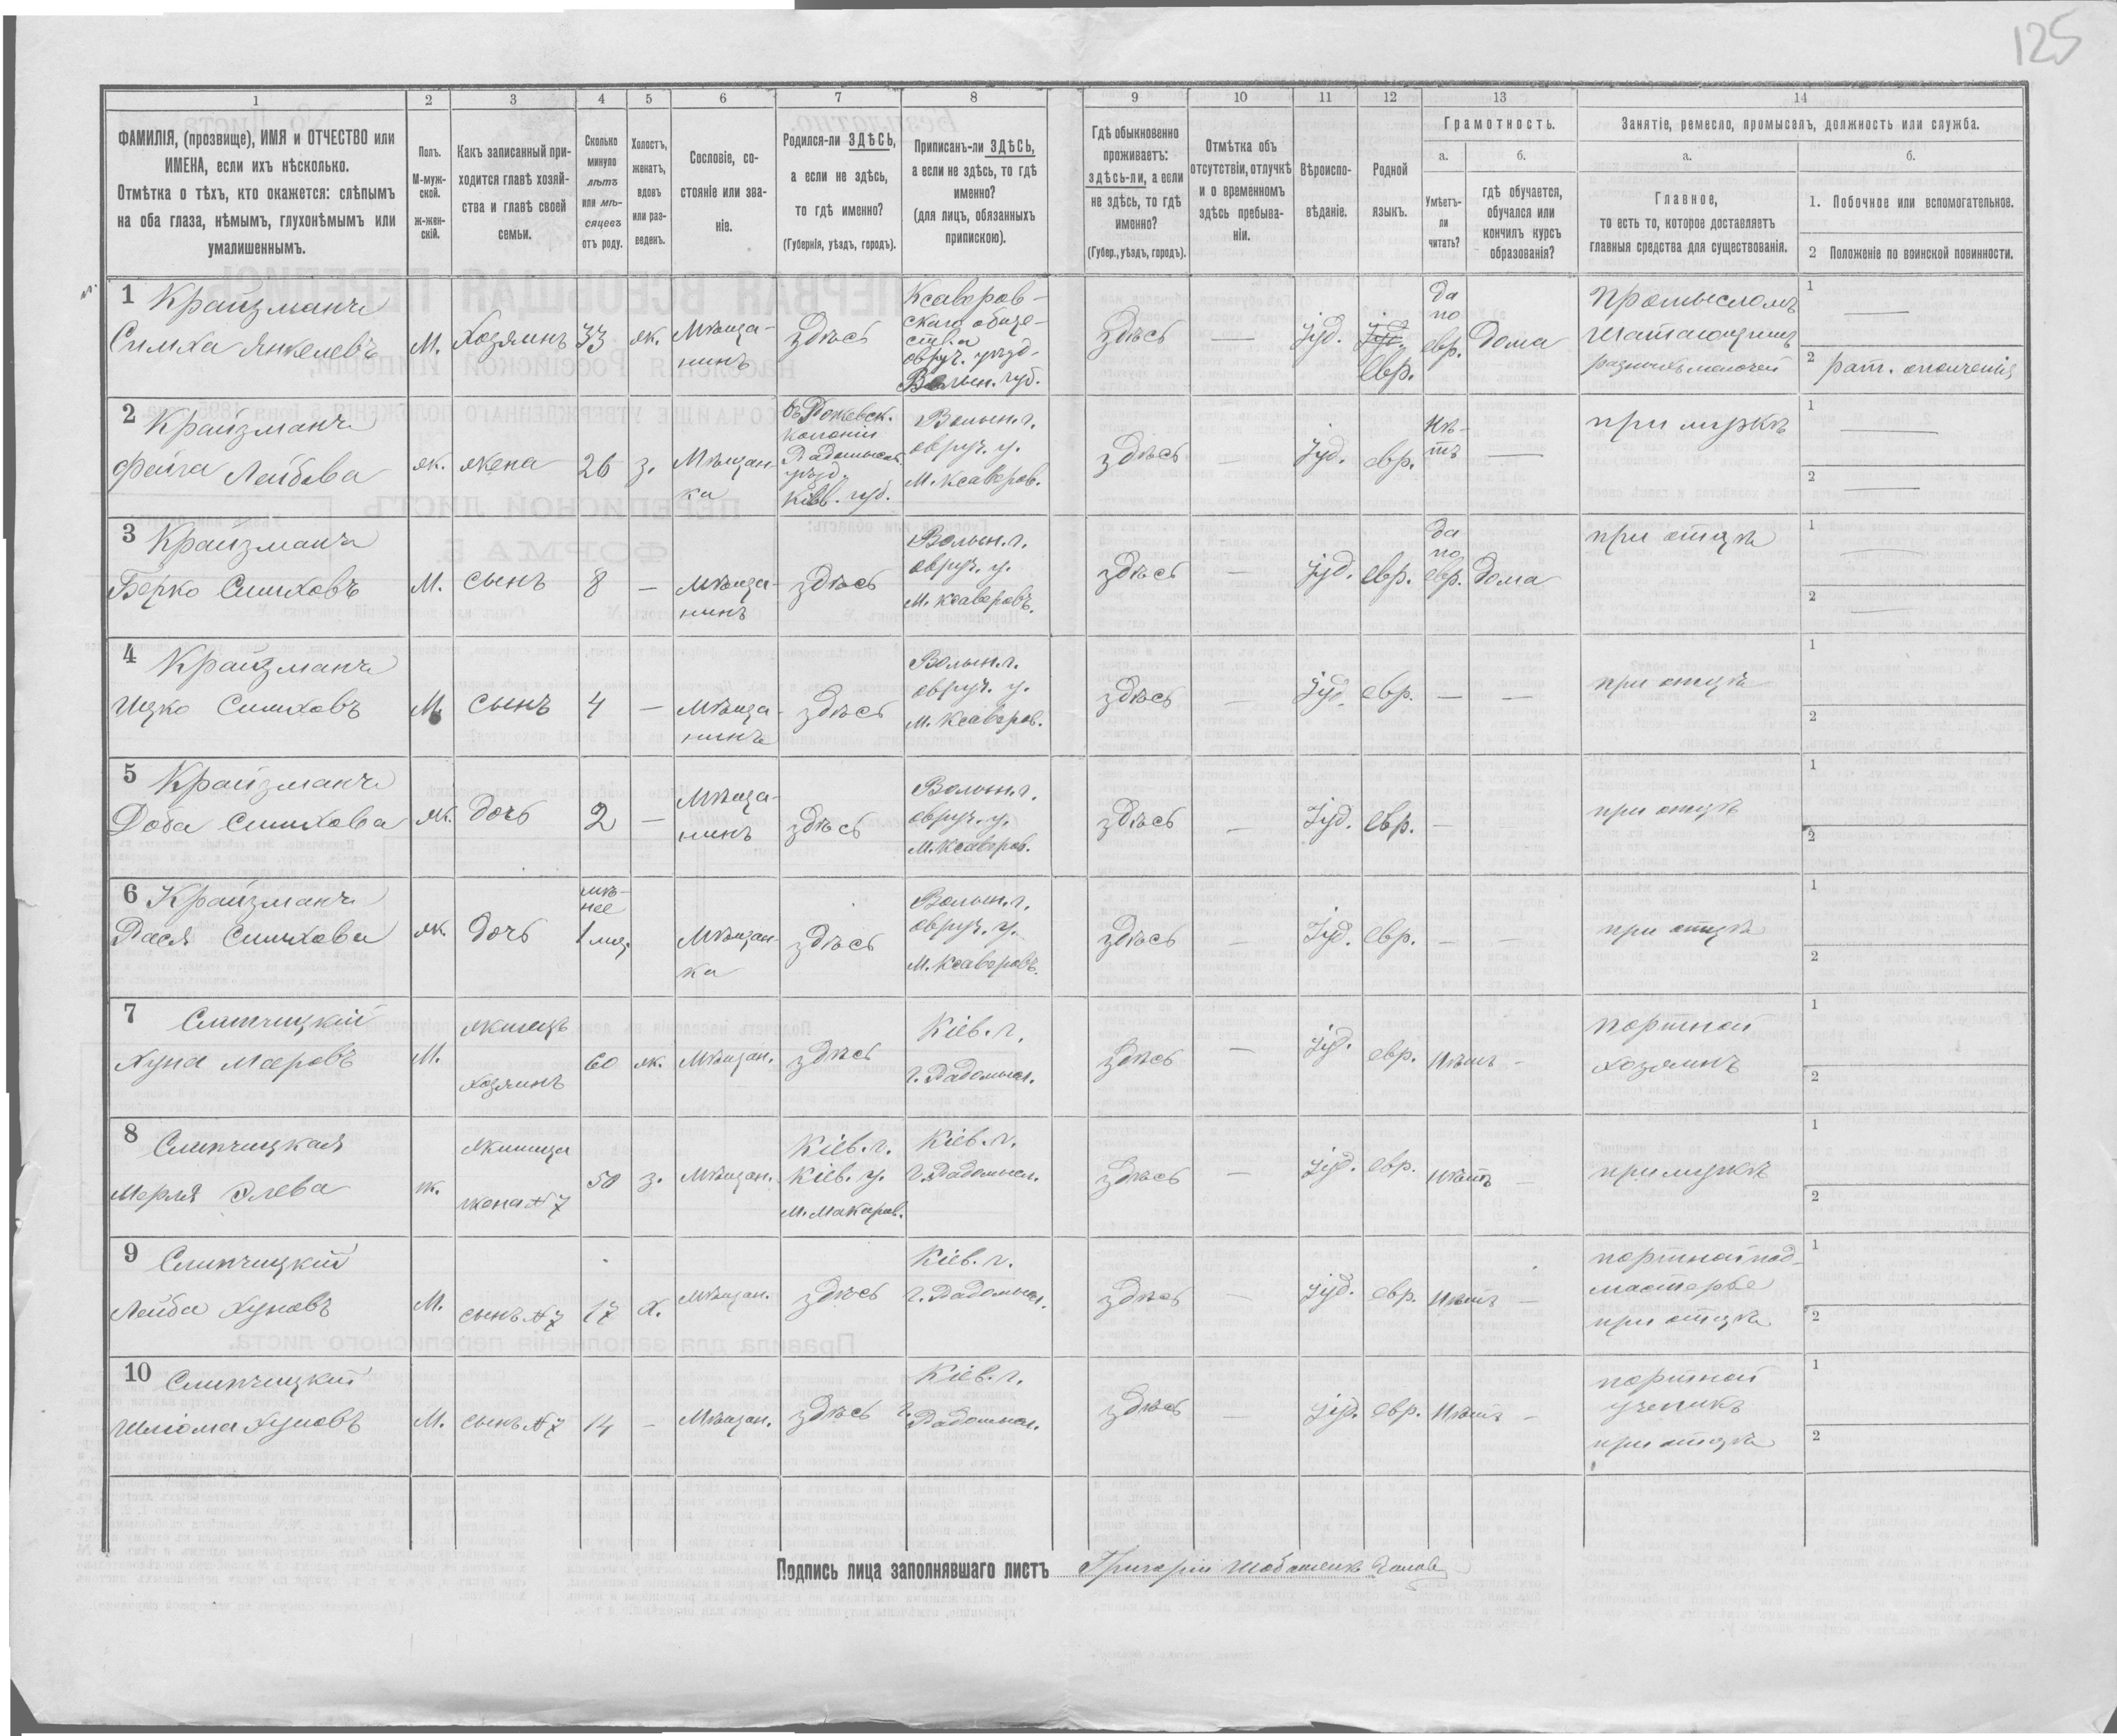 125
1
2
3
4
5
6
7
8
9
10
11
12
13
14
ФАМИЛІЯ, (прозвище), ИМЯ и ОТЧЕСТВО или
ИМЕНА, если ихъ нѣсколько.
Отмѣтка о тѣхъ, кто окажется: слѣпымъ
на оба глаза, нѣмымъ, глухонѣмымъ или
умалишеннымъ.
Полъ.
М-муж-
ской.
ж-жен-
скій.
Какъ записанный при-
ходится главѣ хозяй-
ства и главѣ своей
семьи.
Сколько
минуло
лѣтъ
или мѣ-
сяцевъ
отъ роду.
Холостъ,
женатъ,
вдовъ
или раз-
веденъ.
Сословіе, со-
стояніе или зва-
ніе.
Родился-ли ЗДѢСЬ,
а если не здѣсь,
то гдѣ именно?
(Губернія, уѣздъ, городъ).
Приписанъ-ли ЗДѢСЬ,
а если не здѣсь, то гдѣ
именно?
(для лицъ, обязанныхъ
припискою).
Гдѣ обыкновенно
проживаетъ:
здѣсь-ли, а если
не здѣсь, то гдѣ
именно?
(Губер., уѣздъ, городъ).
Отмѣтка объ
отсутствіи, отлучкѣ
и о временномъ
здѣсь пребыва-
ніи.
Вѣроиспо-
вѣданіе.
Родной
языкъ.
Грамотность.
а.
Умѣетъ-
ли
читать?
б.
гдѣ обучается,
обучался или
кончилъ курсъ
образованія?
Занятіе, ремесло, промыселъ, должность или служба.
а.
Главное,
то есть то, которое доставляетъ
главныя средства для существованія.
б.
1. Побочное или вспомогательное.
2 Положеніе по воинской повинности.
1 Крайзманъ
Симха Янкелевъ
М.
Хозяинъ
33
ж.
Мѣща-
нинъ
здѣсь
Ксаверов-
скаго обще-
ства
овруч. уѣзд.
Волын. губ.
здѣсь
—
Іуд.
Іуд.
евр.
да
по
евр.
дома
промысломъ
1 —
2 рат. ополченія
2 Крайзманъ
Файга Лейбова
ж.
жена
26
з.
Мѣщан-
ка
колоніи
Радомысл.
уѣзд.
Кіев. губ.
Волын. г.
овруч. у.
М. Ксаверов.
здѣсь
—
Іуд.
евр.
нѣ-
тъ
—
при мужѣ
1 —
2 —
3 Крайзманъ
Берко Симховъ
М.
сынъ
8
—
мѣща-
нинъ
здѣсь
Волын. г.
овруч. у.
М. Ксаверовъ.
здѣсь
—
Іуд.
евр.
да
по
евр.
дома
при отцѣ
1 —
2 —
4 Крайзманъ
Ицко Симховъ
М.
сынъ
4
—
мѣща-
нинъ
здѣсь
Волын. г.
овруч. у.
М. Ксаверов.
здѣсь
—
Іуд.
евр.
—
—
при отцѣ
1
2
5 Крайзманъ
Доба Симхова
ж.
дочь
2
—
Мѣща-
нинъ
здѣсь
Волын. г.
овруч. у.
М. Ксаверов.
здѣсь
—
Іуд.
евр.
—
при отцѣ
1
2
6 Крайзманъ
Рася Симхова
ж.
дочь
мѣ-
нее
1 мѣс.
Мѣщан-
ка
здѣсь
Волын. г.
овруч. у.
М. Ксаверовъ.
здѣсь
—
Іуд.
евр.
—
—
при отцѣ
1
2
7 Слипчицкій
Хуна Мееровъ
М.
жилецъ
хозяинъ
60
ж.
мѣщан.
здѣсь
Кіев. г.
г. Радомысл.
здѣсь
—
Іуд.
евр.
нѣтъ
—
портной
хозяинъ
1
2
8 Слипчицкая
Мерля
ж.
жилица
жена №7
50
з.
мѣщан.
Кіев. г.
Кіев. у.
м. Макаров.
Кіев. г.
г. Радомысл.
здѣсь
—
Іуд.
евр.
нѣтъ
—
при мужѣ
1
2
9 Слипчицкій
Лейба Хуновъ
М.
сынъ №7
17
х.
мѣщан.
здѣсь
Кіев. г.
г. Радомысл.
здѣсь
—
Іуд.
евр.
нѣтъ
—
портной под-
мастерье
при отцѣ
1
2
10 Слипчицкій
Шліома Хуновъ
М.
сынъ №7
14
—
мѣщан.
здѣсь
Кіев. г.
г. Радомысл.
здѣсь
—
Іуд.
евр.
нѣтъ
—
портной
ученикъ
при отцѣ
1
2
Подпись лица заполнявшаго листъ Григорій